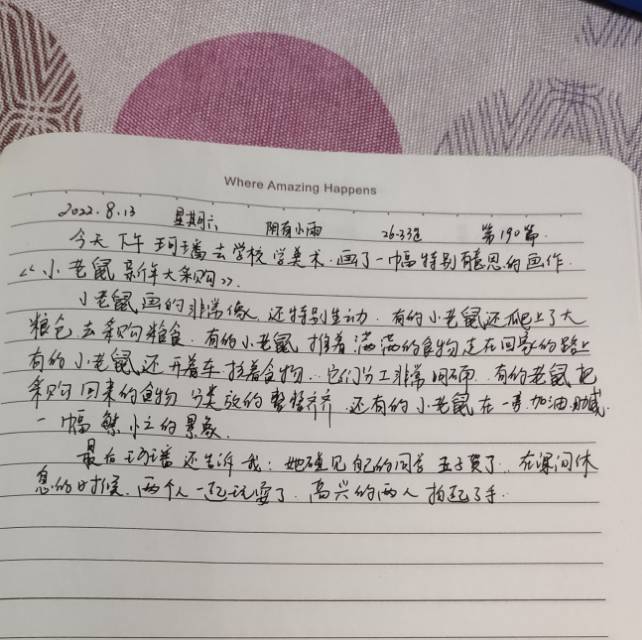 Where Amazing Happens
2022.8.13 星期六 阴有小雨 26-33℃ 第190篇.
今天下午珂璠去学校学美术.画了一幅特别有意思的画作.
《小老鼠新年大采购》.
小老鼠画的非常像,还特别生动.有的小老鼠还爬上了大
粮仓去采购粮食.有的小老鼠推着满满的食物走在回家的路上
有的小老鼠还开着车拉着食物.它们分工非常明确.有的老鼠把
采购回来的食物分类放的整整齐齐.还有的小老鼠在一旁加油助威.
一幅繁忙的景象.
最后珂璠还告诉我:她碰见自己的同学了.在课间休
息的时候.两个人一起玩耍了.高兴的两人拍起了手.